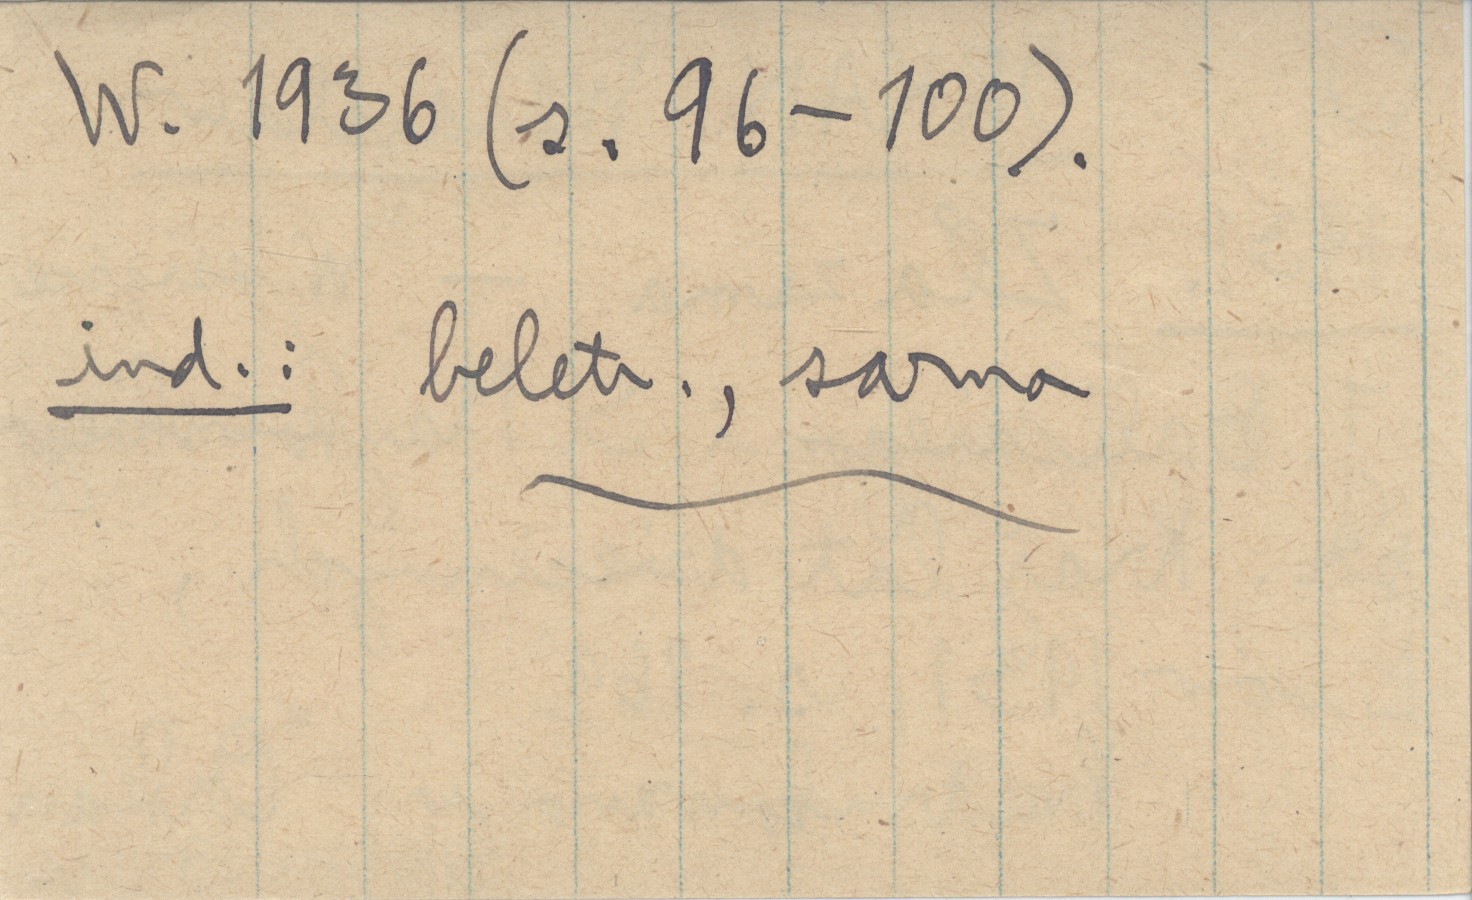 W. 1936 (s. 96–100).
ind.: beletr., sarna